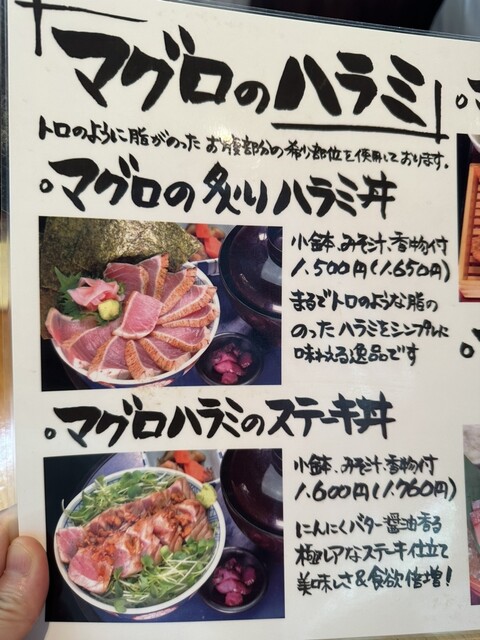 マグロのハラミ
トロのように脂がのったお腹部分の希少部位を使用しております。
マグロの炙りハラミ丼
小鉢、みそ汁、香物付
1,500円(1,650円)
まるでトロのような脂の
のったハラミをシンプルに
味わえる逸品です
マグロハラミのステーキ丼
小鉢、みそ汁、香物付
1,600円(1,760円)
にんにくバター醤油香る
極レアなステーキ仕立て
美味しさ&食欲倍増!